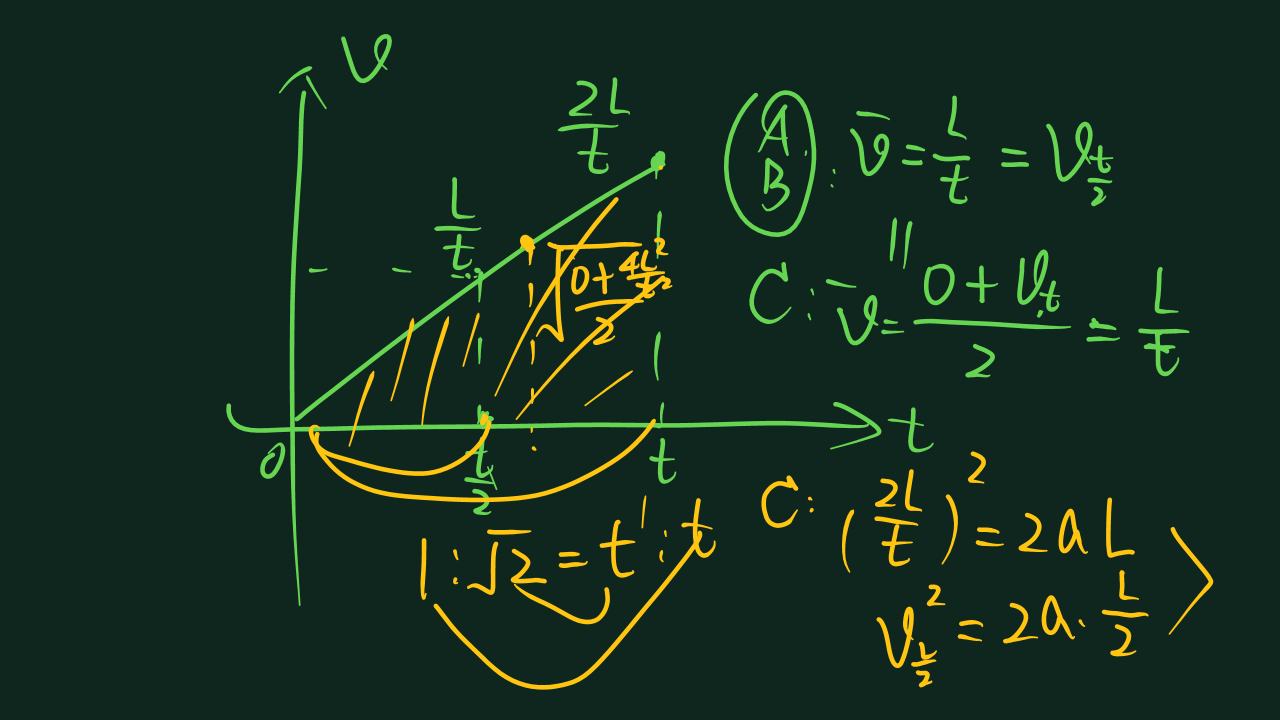 v
2L/t
L/t
√((0+4L²/t²)/2)
0
t/2
t
t
1:√2=t':t
A
B : v̄=L/t=v_{t/2}
||
C: v̄=(0+v_t)/2=L/t
C: (2L/t)²=2aL
v_{L/2}²=2a·L/2